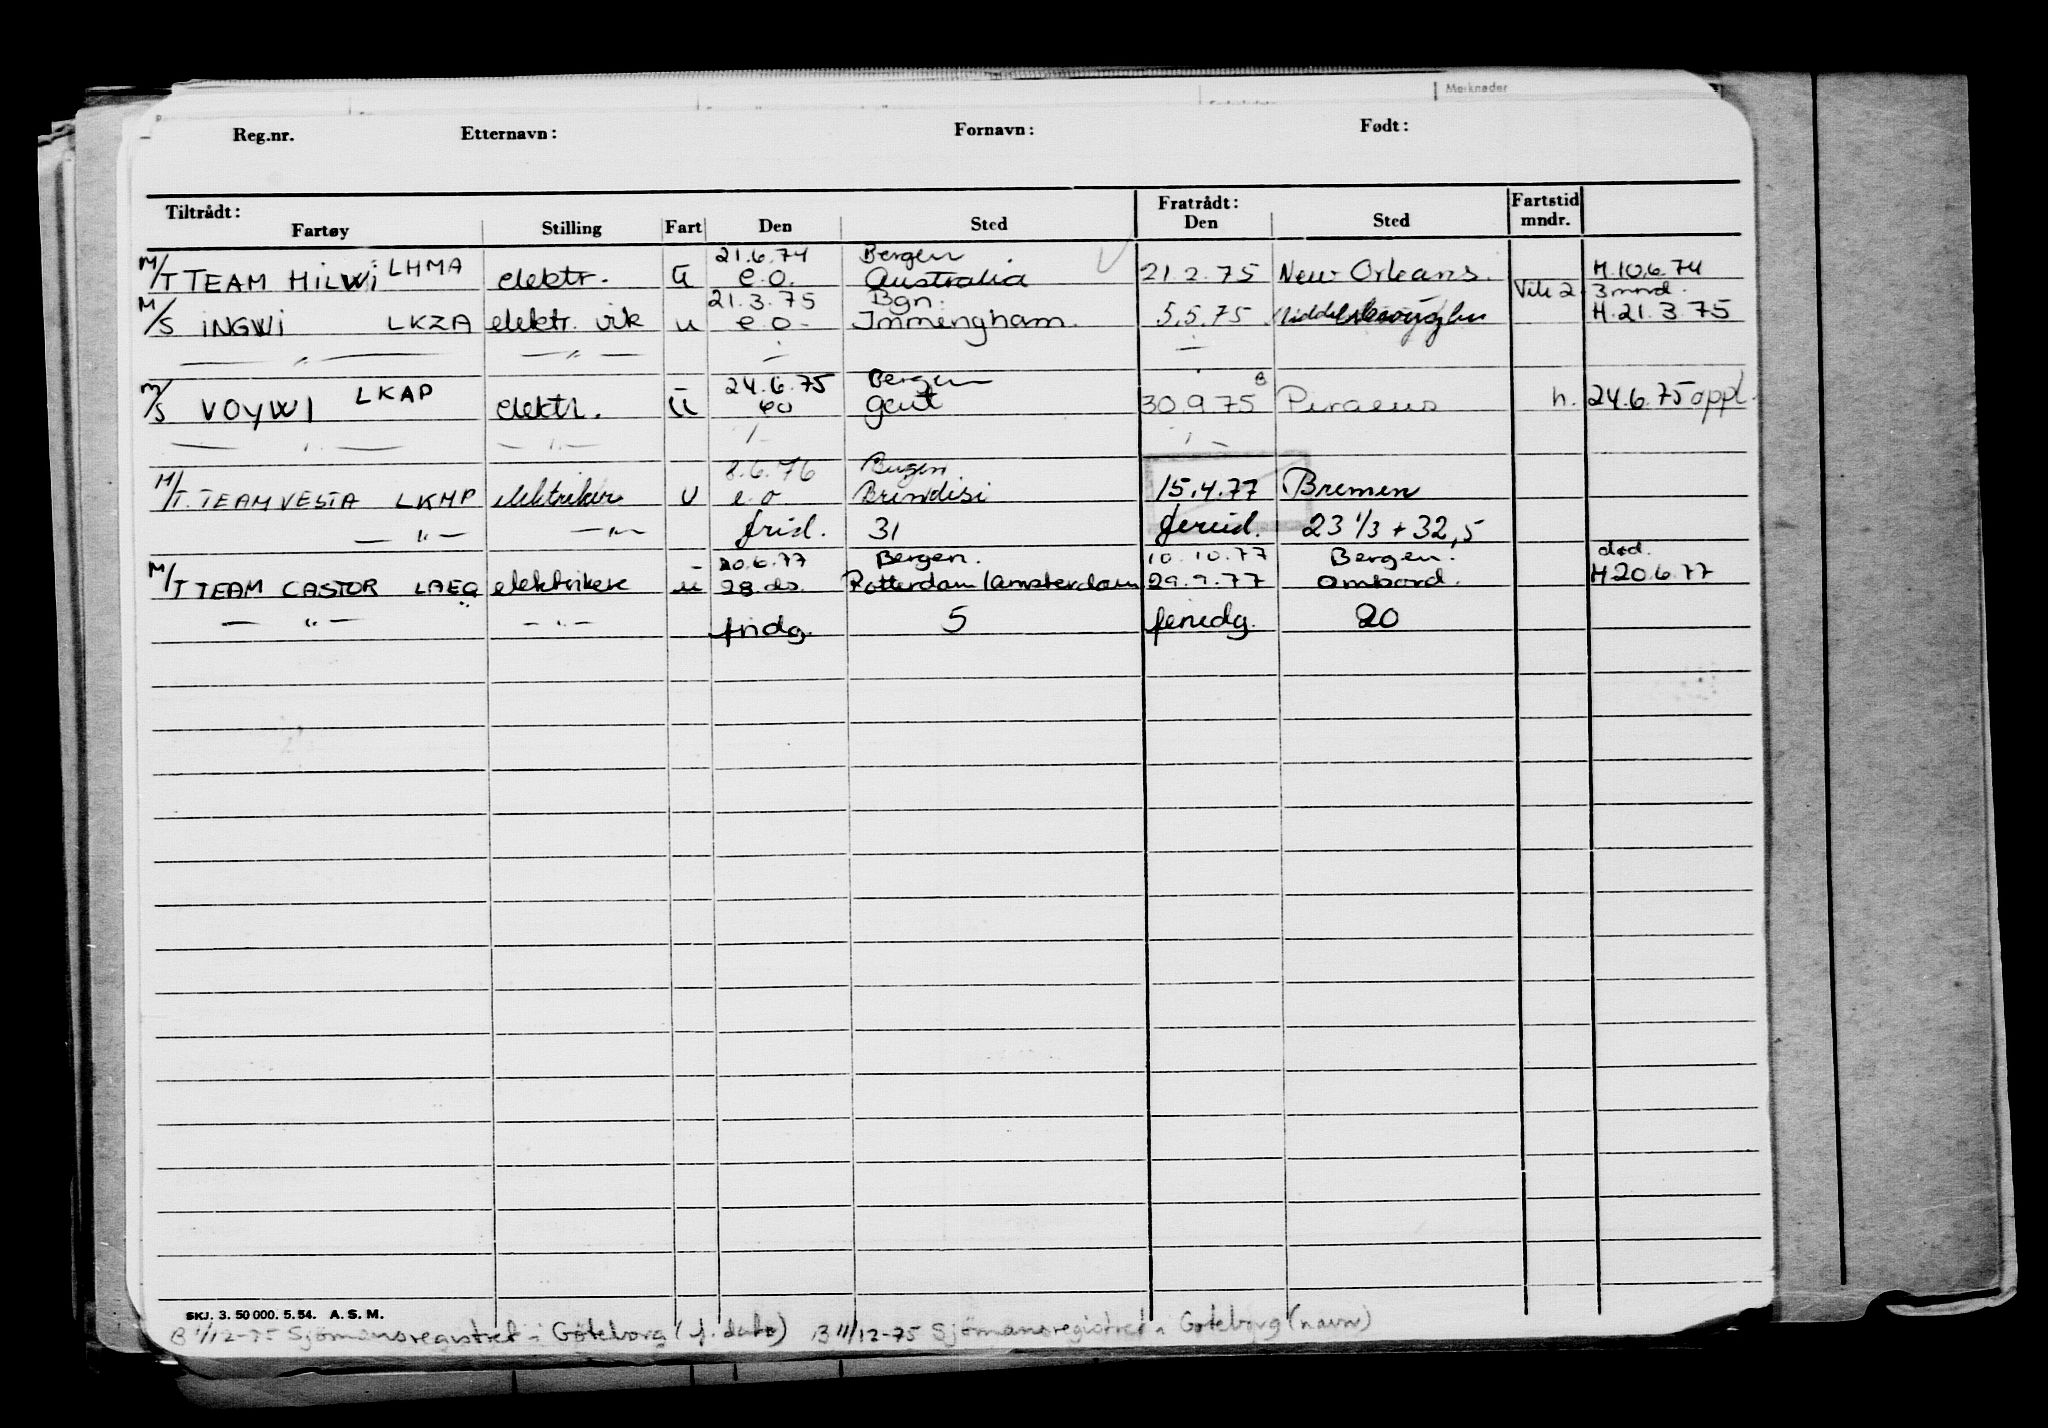 Merknader
Reg.nr. Etternavn: Fornavn: Født:
Tiltrådt: Fratrådt: Fartstid
Fartøy Stilling Fart Den Sted Den Sted mndr.
21.6.74 Bergen
M/T TEAM HILWI LHMA elektr. u e.o. Australia 21.2.75 New Orleans. H.10.6.74
21.3.75 Bgn. 3 mnd.
M/S INGWI LKZA elektr. vik u e.o. Immengham. 5.5.75 H.21.3.75
— " — — " —
24.6.75 Bergen B
M/S VOYWI LKAP elektr. u eo Gent 30.9.75 Piraeus h. 24.6.75 oppl.
— " — — " —
8.6.76 Bergen
M/T. TEAM VESTA LKMP elektriker U e.o Brindisi 15.4.77 Bremen
— " — — " — frid. 31 feried. 23 1/3 + 32,5
20.6.77 Bergen. 10.10.77 Bergen. død.
M/T TEAM CASTOR LAEQ elektriker u 28 ds. Rotterdam/Amsterdam 29.9.77 ombord. H 20.6.77
— " — — " — fridg. 5 feriedg. 20
SKJ. 3. 50 000. 5. 54. A. S. M.
B 1/12-75 Sjömansregistret i Göteborg (f. dato) B 11/12-75 Sjömansregistret i Göteborg (navn)